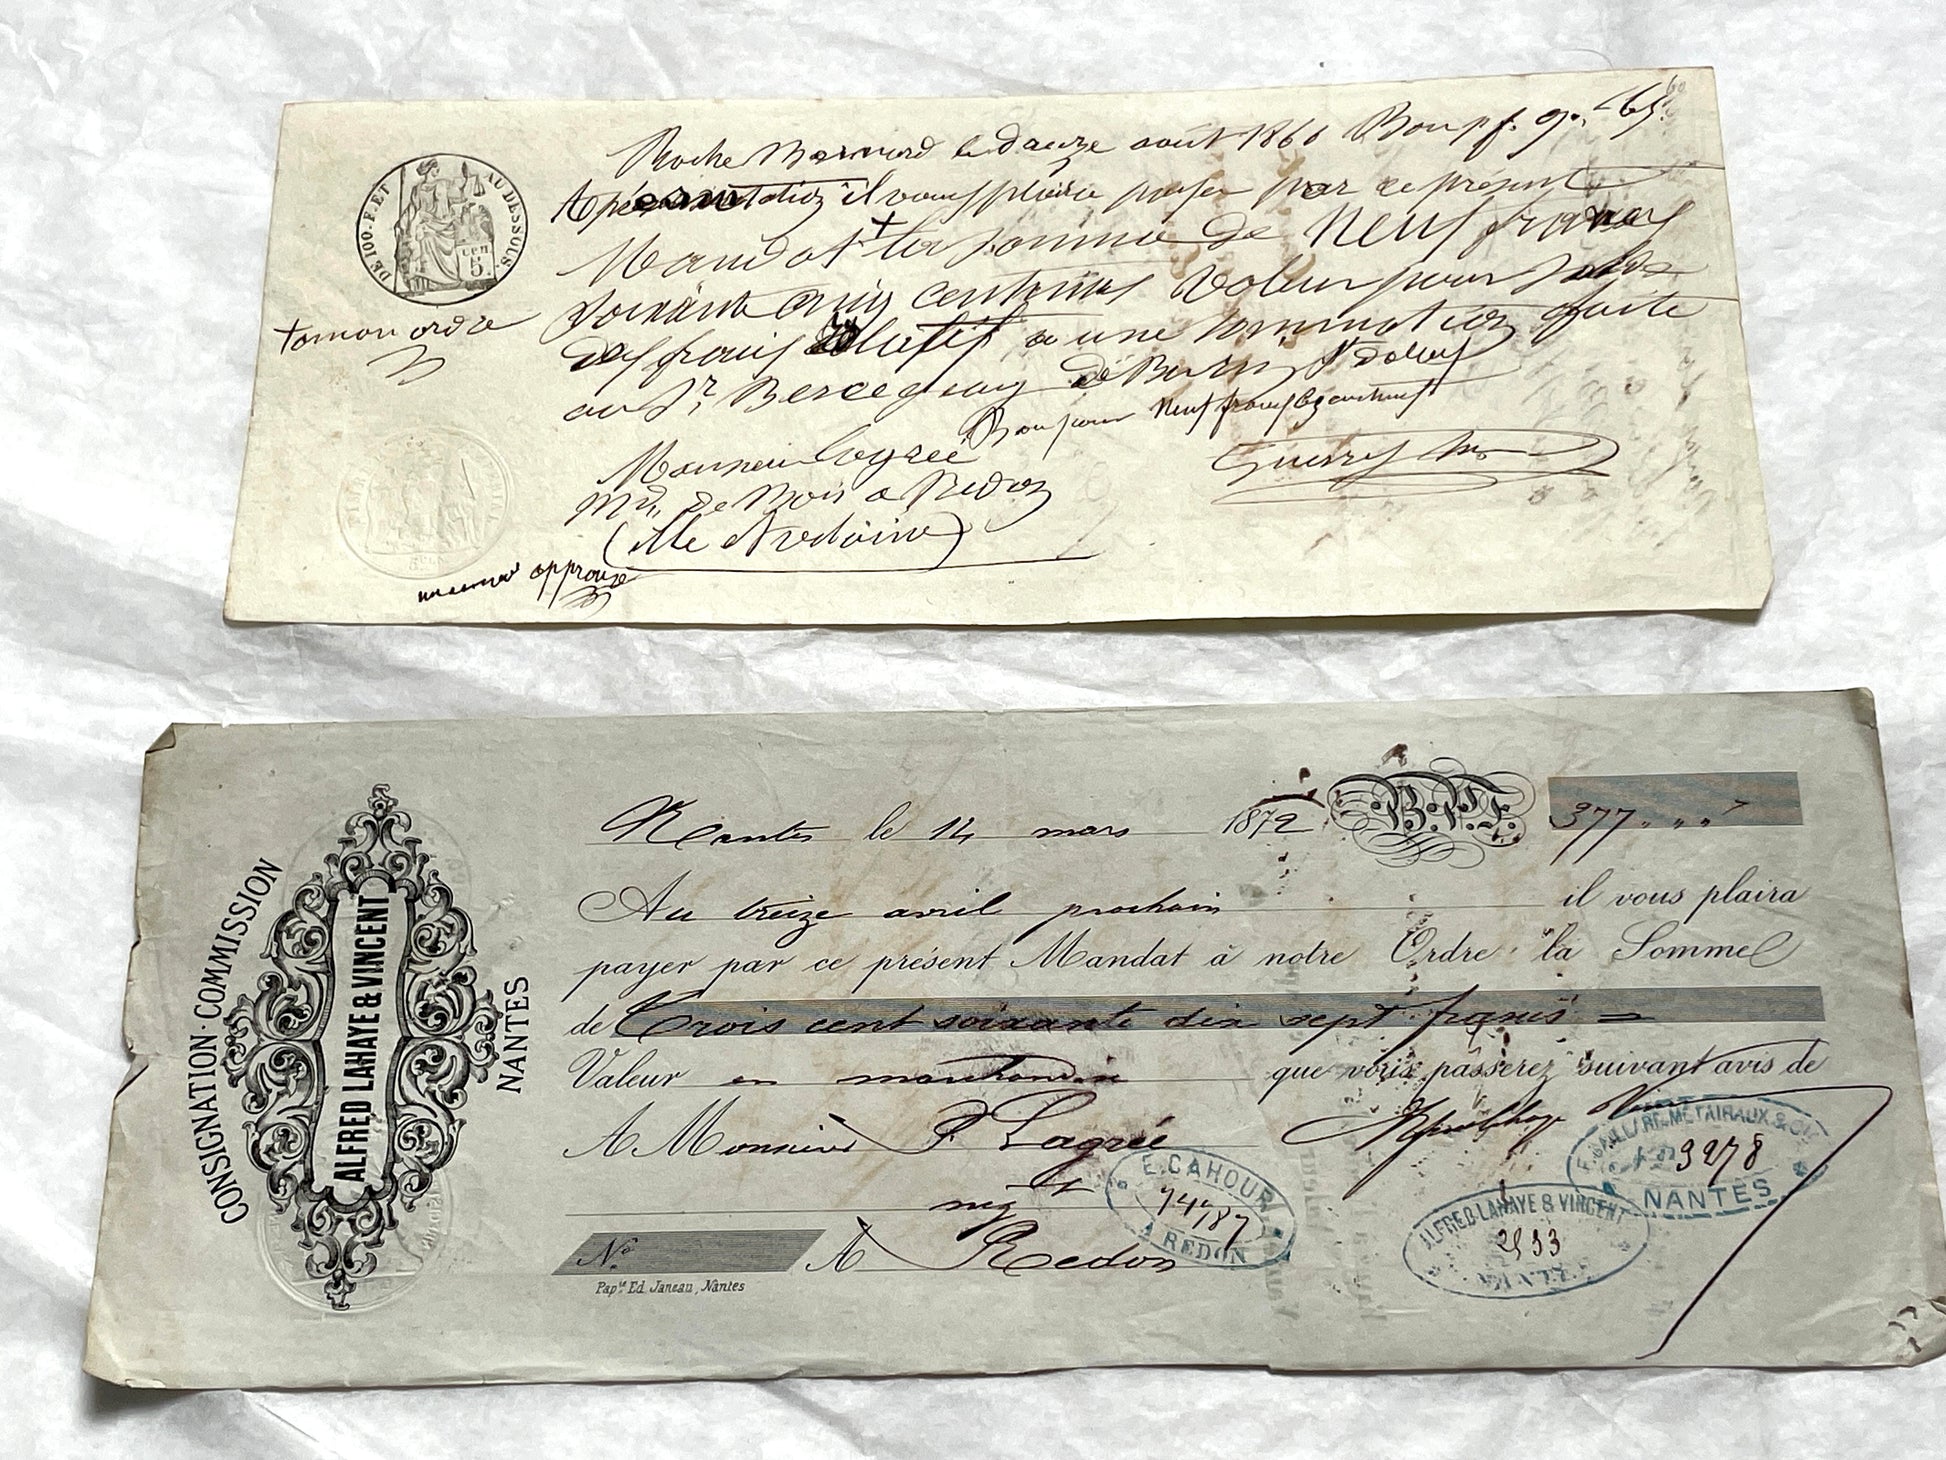 DE 100.F. ET AU DESSOUS.
5
Roche Bernard le douze août 186 Bon pf. 9.. 65.
il vous plaira payer par ce présent
Mandat + la somme de Neuf francs
soixante cinq centimes valeur pour solde
des frais relatifs a une sommation faite
au Sr. de
+ a mon ordre
Bon pour Neuf francs 65 centimes
Monsieur Lagrée
Md. de Bois a Redon
(ille et vilaine)
approuvé
CONSIGNATION · COMMISSION
ALFRED LAHAYE & VINCENT
NANTES
Nantes le 14 mars 1872 B.P.F. 377 " " "
Au treize avril prochain il vous plaira
payer par ce présent Mandat à notre Ordre la Somme
de Trois cent soixante dix sept francs =
Valeur en marchandise que vous passerez suivant avis de
A Monsieur P Lagrée
nég t
N.º A Redon
Pap.ie Ed. Janeau, Nantes
E. CAHOUR
74787
A REDON
METAIRAUX & Cie
3278
NANTES
ALFRED LAHAYE & VINCENT
2933
NANTES